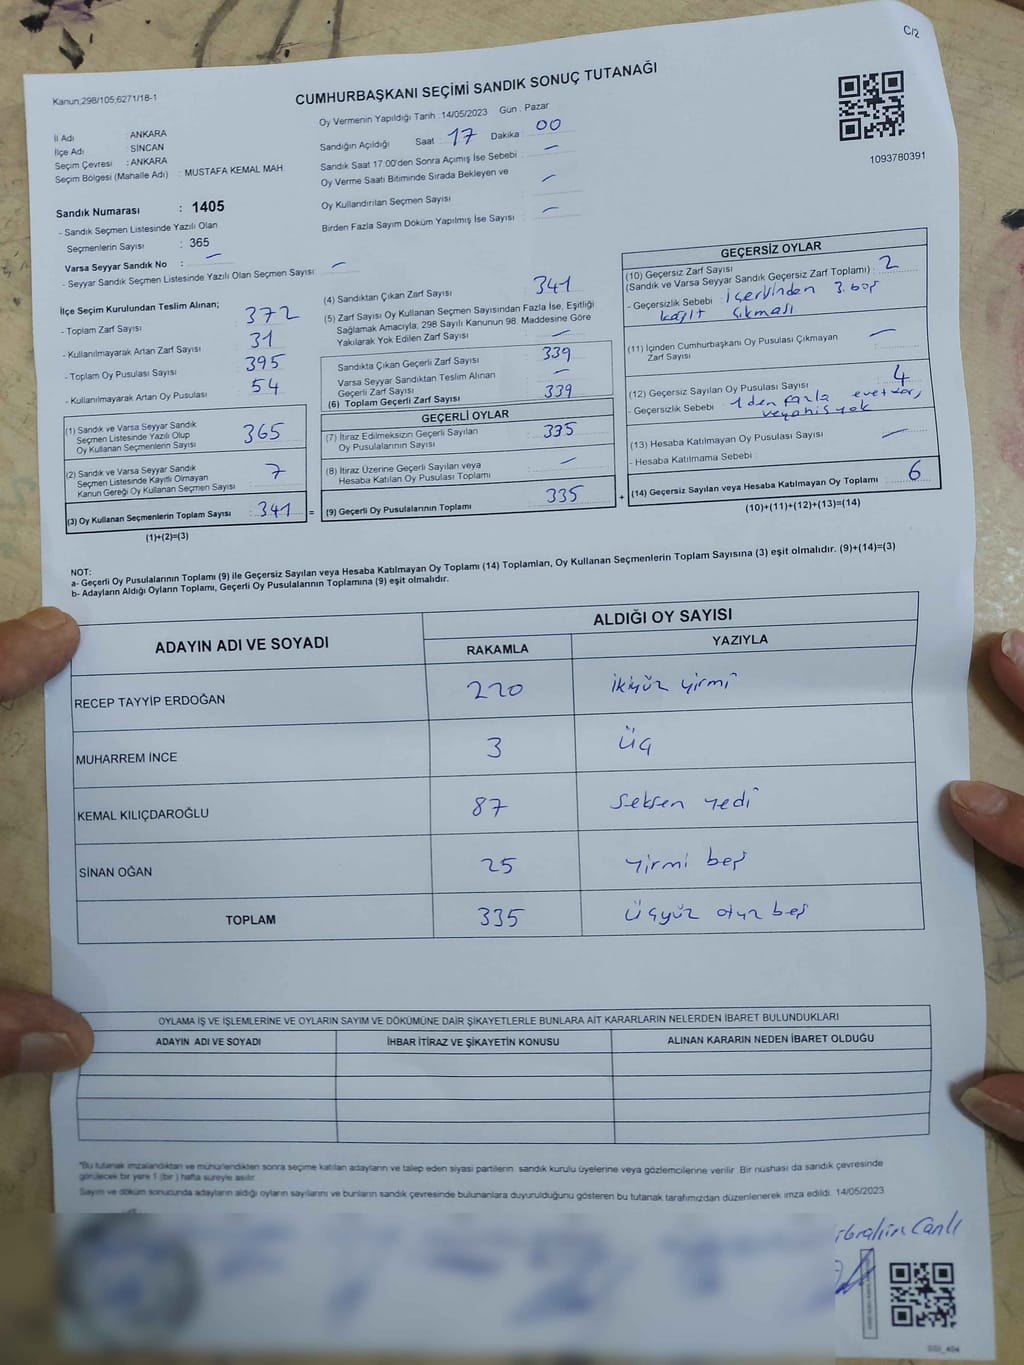 C/2
Kanun;298/105;6271/18-1
CUMHURBAŞKANI SEÇİMİ SANDIK SONUÇ TUTANAĞI
İl Adı : ANKARA
İlçe Adı : SİNCAN
Seçim Çevresi : ANKARA
Seçim Bölgesi (Mahalle Adı) : MUSTAFA KEMAL MAH.
Oy Vermenin Yapıldığı Tarih :14/05/2023 Gün : Pazar
Sandığın Açıldığı Saat 17 Dakika 00
Sandık Saat 17:00'den Sonra Açımış İse Sebebi : —
Oy Verme Saati Bitiminde Sırada Bekleyen ve
Oy Kullandırılan Seçmen Sayısı —
Birden Fazla Sayım Döküm Yapılmış İse Sayısı : —
1093780391
Sandık Numarası : 1405
- Sandık Seçmen Listesinde Yazılı Olan
Seçmenlerin Sayısı : 365
Varsa Seyyar Sandık No : —
- Seyyar Sandık Seçmen Listesinde Yazılı Olan Seçmen Sayısı: —
İlçe Seçim Kurulundan Teslim Alınan;
- Toplam Zarf Sayısı 372
- Kullanılmayarak Artan Zarf Sayısı : 31
- Toplam Oy Pusulası Sayısı : 395
- Kullanılmayarak Artan Oy Pusulası : 54
(1) Sandık ve Varsa Seyyar Sandık
Seçmen Listesinde Yazılı Olup
Oy Kullanan Seçmenlerin Sayısı 365
(2) Sandık ve Varsa Seyyar Sandık
Seçmen Listesinde Kayıtlı Olmayan
Kanun Gereği Oy Kullanan Seçmen Sayısı : 7
(3) Oy Kullanan Seçmenlerin Toplam Sayısı : 341 =
(1)+(2)=(3)
(4) Sandıktan Çıkan Zarf Sayısı : 341
(5) Zarf Sayısı Oy Kullanan Seçmen Sayısından Fazla İse, Eşitliği
Sağlamak Amacıyla, 298 Sayılı Kanunun 98. Maddesine Göre
Yakılarak Yok Edilen Zarf Sayısı : —
Sandıkta Çıkan Geçerli Zarf Sayısı : 339
Varsa Seyyar Sandıktan Teslim Alınan
Geçerli Zarf Sayısı : —
(6) Toplam Geçerli Zarf Sayısı : 339
GEÇERLİ OYLAR
(7) İtiraz Edilmeksizin Geçerli Sayılan
Oy Pusulalarının Sayısı : 335
(8) İtiraz Üzerine Geçerli Sayılan veya
Hesaba Katılan Oy Pusulası Toplamı : —
(9) Geçerli Oy Pusulalarının Toplamı : 335 +
GEÇERSİZ OYLAR
(10) Geçersiz Zarf Sayısı
(Sandık ve Varsa Seyyar Sandık Geçersiz Zarf Toplamı) : 2
- Geçersizlik Sebebi : içerisinden 3. boş
kağıt çıkması
(11) İçinden Cumhurbaşkanı Oy Pusulası Çıkmayan
Zarf Sayısı : —
(12) Geçersiz Sayılan Oy Pusulası Sayısı : 4
- Geçersizlik Sebebi : 1 den fazla evet var,
(13) Hesaba Katılmayan Oy Pusulası Sayısı : —
- Hesaba Katılmama Sebebi :
(14) Geçersiz Sayılan veya Hesaba Katılmayan Oy Toplamı : 6
(10)+(11)+(12)+(13)=(14)
NOT:
a- Geçerli Oy Pusulalarının Toplamı (9) ile Geçersiz Sayılan veya Hesaba Katılmayan Oy Toplamı (14) Toplamları, Oy Kullanan Seçmenlerin Toplam Sayısına (3) eşit olmalıdır. (9)+(14)=(3)
b- Adayların Aldığı Oyların Toplamı, Geçerli Oy Pusulalarının Toplamına (9) eşit olmalıdır.
ADAYIN ADI VE SOYADI ALDIĞI OY SAYISI
RAKAMLA YAZIYLA
RECEP TAYYİP ERDOĞAN 220 ikiyüz yirmi
MUHARREM İNCE 3 üç
KEMAL KILIÇDAROĞLU 87 seksen yedi
SİNAN OĞAN 25 yirmi beş
TOPLAM 335 üçyüz otuz beş
OYLAMA İŞ VE İŞLEMLERİNE VE OYLARIN SAYIM VE DÖKÜMÜNE DAİR ŞİKAYETLERLE BUNLARA AİT KARARLARIN NELERDEN İBARET BULUNDUKLARI
ADAYIN ADI VE SOYADI İHBAR İTİRAZ VE ŞİKAYETİN KONUSU ALINAN KARARIN NEDEN İBARET OLDUĞU
*Bu tutanak imzalandıktan ve mühürlendikten sonra seçime katılan adayların ve talep eden siyasi partilerin sandık kurulu üyelerine veya gözlemcilerine verilir. Bir nüshası da sandık çevresinde
görülecek bir yere 1 (bir) hafta süreyle asılır.
Sayım ve döküm sonucunda adayların aldığı oyların sayılarını ve bunların sandık çevresinde bulunanlara duyurulduğunu gösteren bu tutanak tarafımızdan düzenlenerek imza edildi. 14/05/2023
ibrahim Canlı